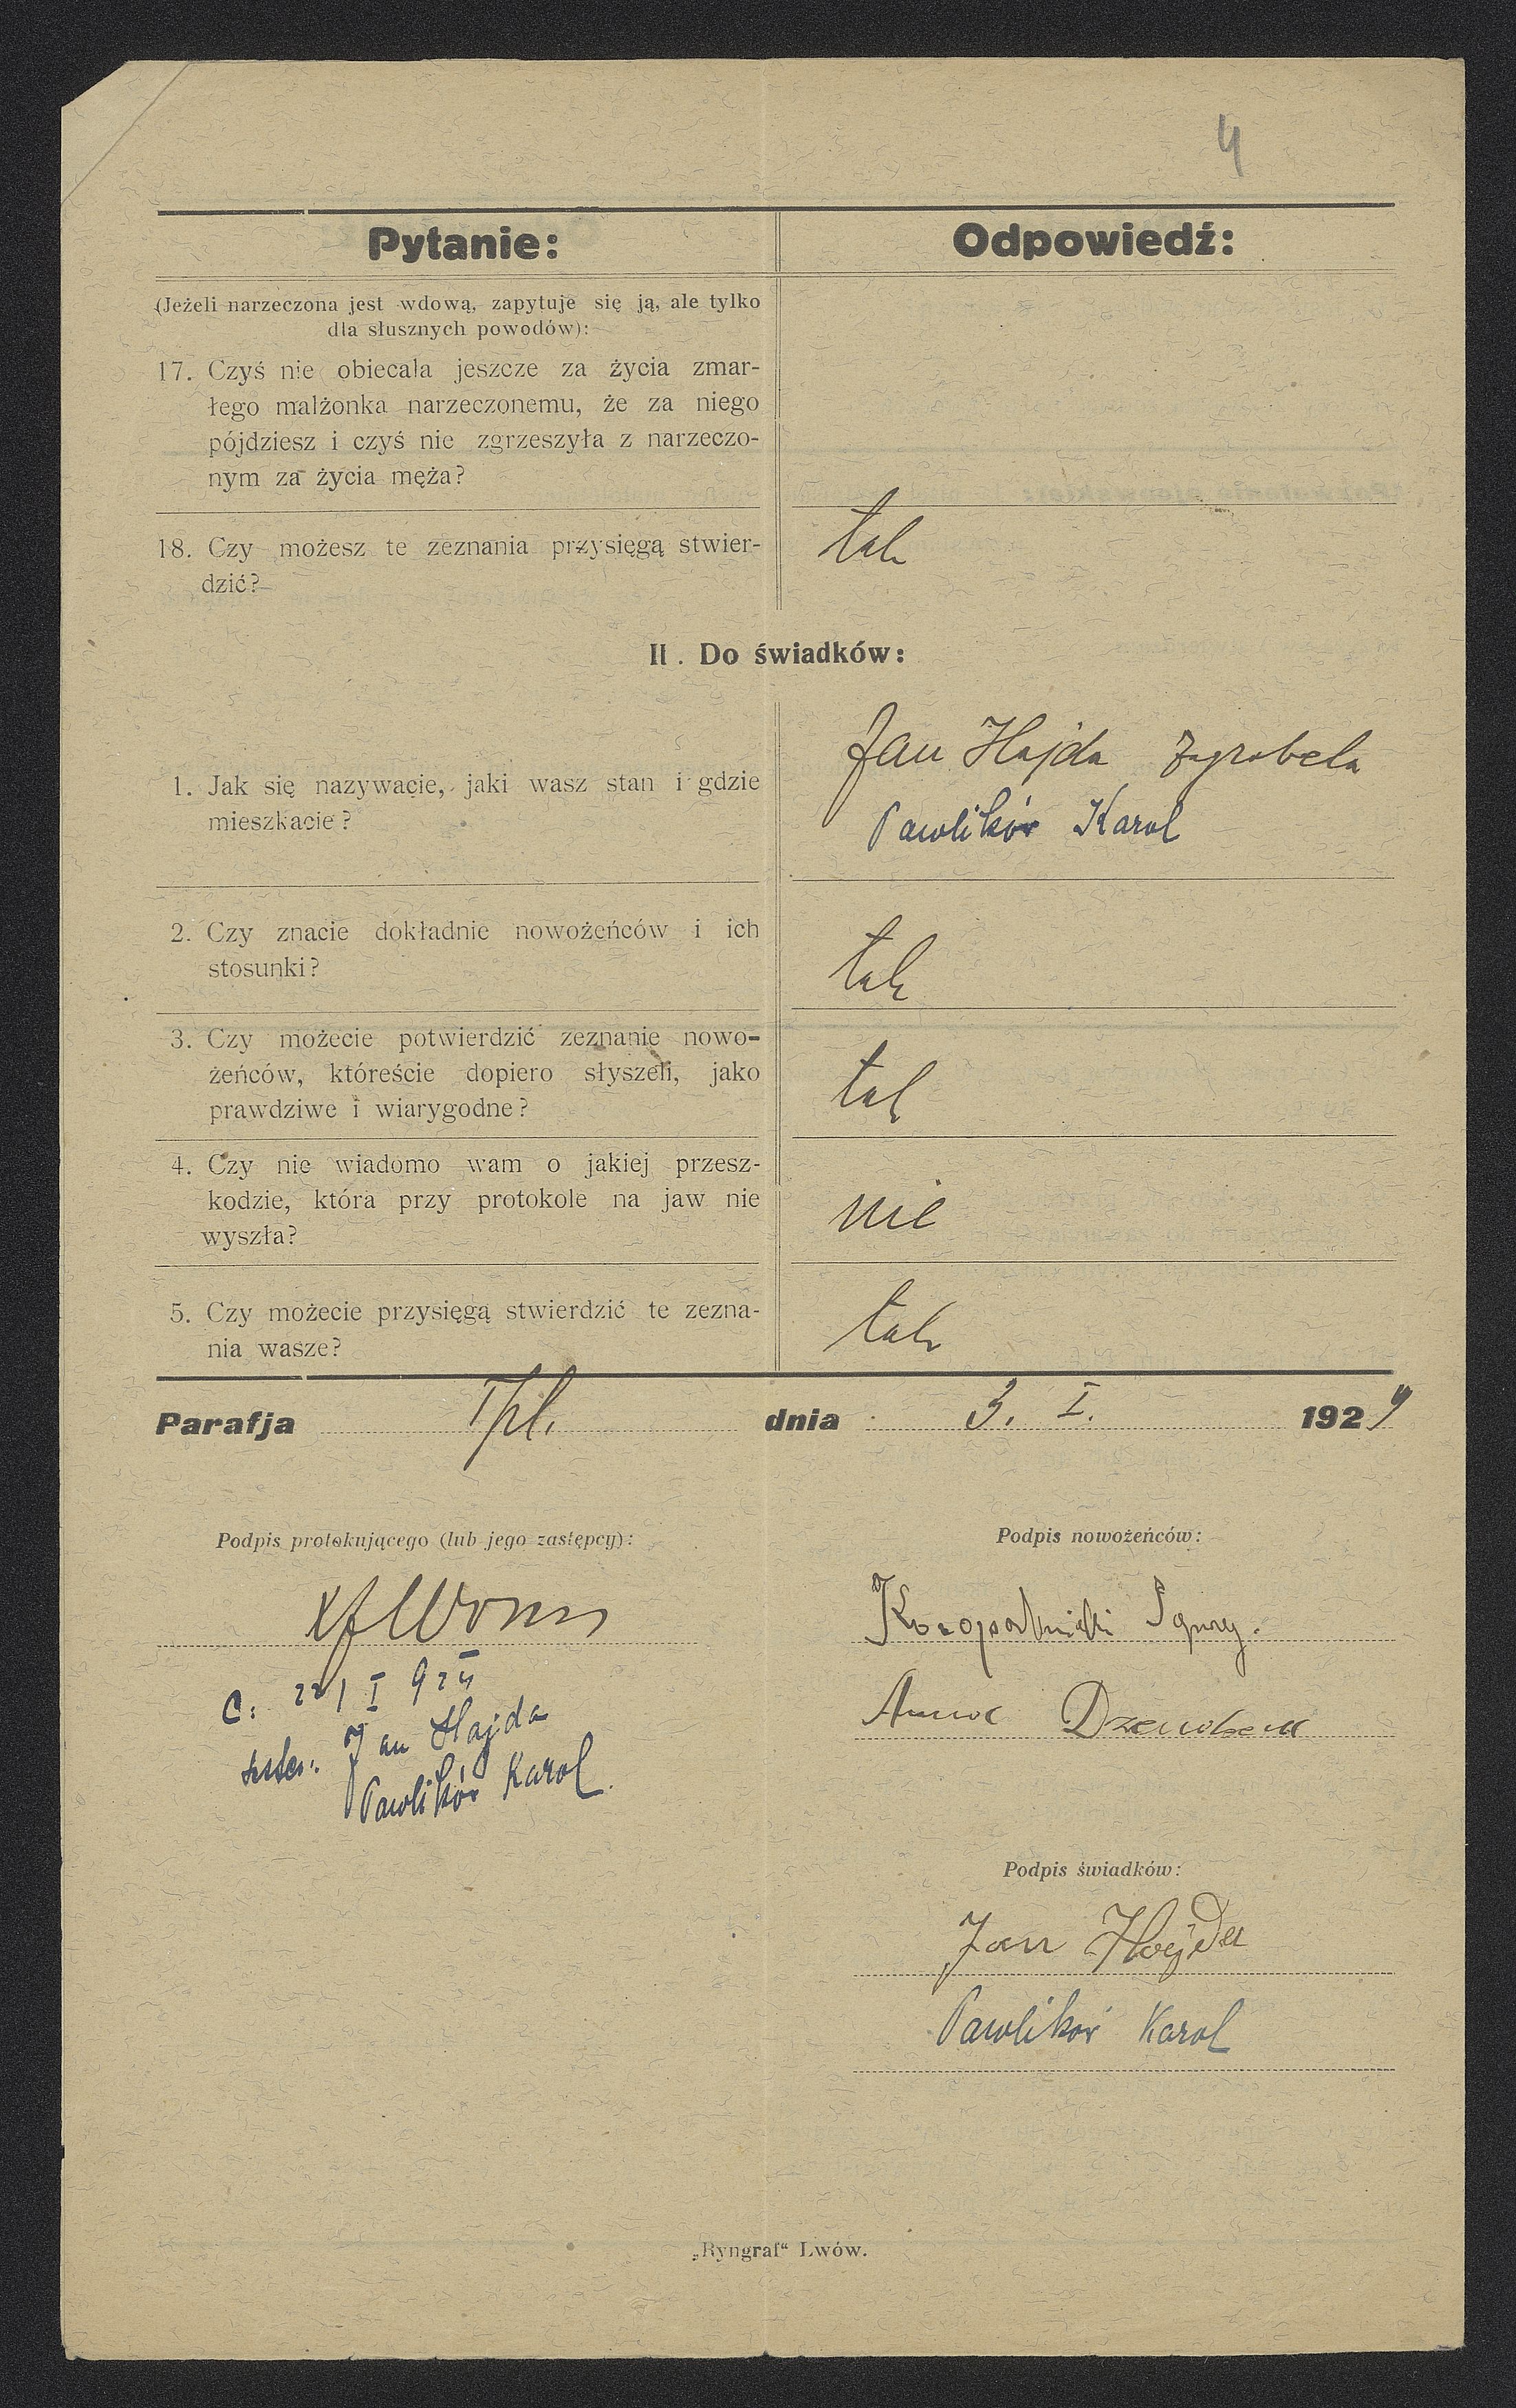 4
Pytanie:
Odpowiedź:
(Jeżeli narzeczona jest wdową, zapytuje się ją, ale tylko
dla słusznych powodów):
17. Czyś nie obiecala jeszcze za życia zmar-
łego malżonka narzeczonemu, że za niego
pójdziesz i czyś nie zgrzeszyła z narzeczo-
nym za życia męża?
18. Czy możesz te zeznania przysięgą stwier-
dzić?
tak
II. Do świadków:
1. Jak się nazywacie, jaki wasz stan i gdzie
mieszkacie?
Jan Hajda Zagrobela
Pawlików Karol
2. Czy znacie dokładnie nowożeńców i ich
stosunki?
tak
3. Czy możecie potwierdzić zeznanie nowo-
żeńców, któreście dopiero słyszeli, jako
prawdziwe i wiarygodne?
tak
4. Czy nie wiadomo wam o jakiej przesz-
kodzie, która przy protokole na jaw nie
wyszła?
nie
5. Czy możecie przysięgą stwierdzić te zezna-
nia wasze?
tak
Parafja Tpl. dnia 3. I. 1924
Podpis protokującego (lub jego zastępcy):
Podpis nowożeńców:
Ignacy.
C: 22/I 924
Anna
Jan Hajda
Pawlików Karol.
Podpis świadków:
Jan Hajda
Pawlików Karol
„Ryngraf“ Lwów.